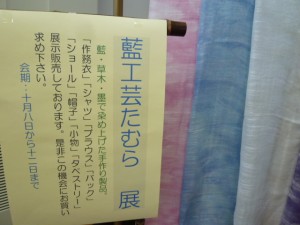 藍工芸たむら 展
藍・草木・墨で染め上げた手作り製品。
「作務衣」「シャツ」「ブラウス」「バック」
「ショール」「帽子」「小物」「タペストリー」
展示販売しております。是非この機会にお買い
求め下さい。
会期：十月八日から十二日まで